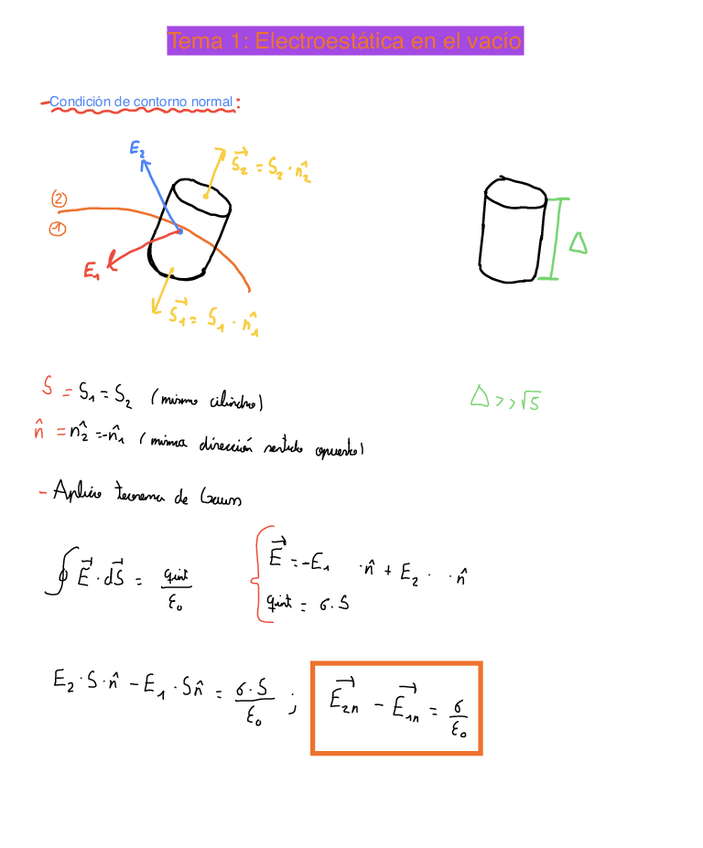 Tema 1: Electroestática en el vacio
-Condición de contorno normal:
E₂
S⃗₂ = S₂ · n̂₂
②
①
E₁
S⃗₁ = S₁ · n̂₁
Δ
S = S₁ = S₂ (mismo cilindro)
Δ >> √S
n̂ = n̂₂ = -n̂₁ (misma dirección sentido opuesto)
- Aplico teorema de Gauss
∮ E⃗ · dS⃗ = qint / ε₀
E⃗ = -E₁ · n̂ + E₂ · · n̂
qint = σ · S
E₂ · S · n̂ - E₁ · S n̂ = σ · S / ε₀ ; E⃗₂ₙ - E⃗₁ₙ = σ / ε₀